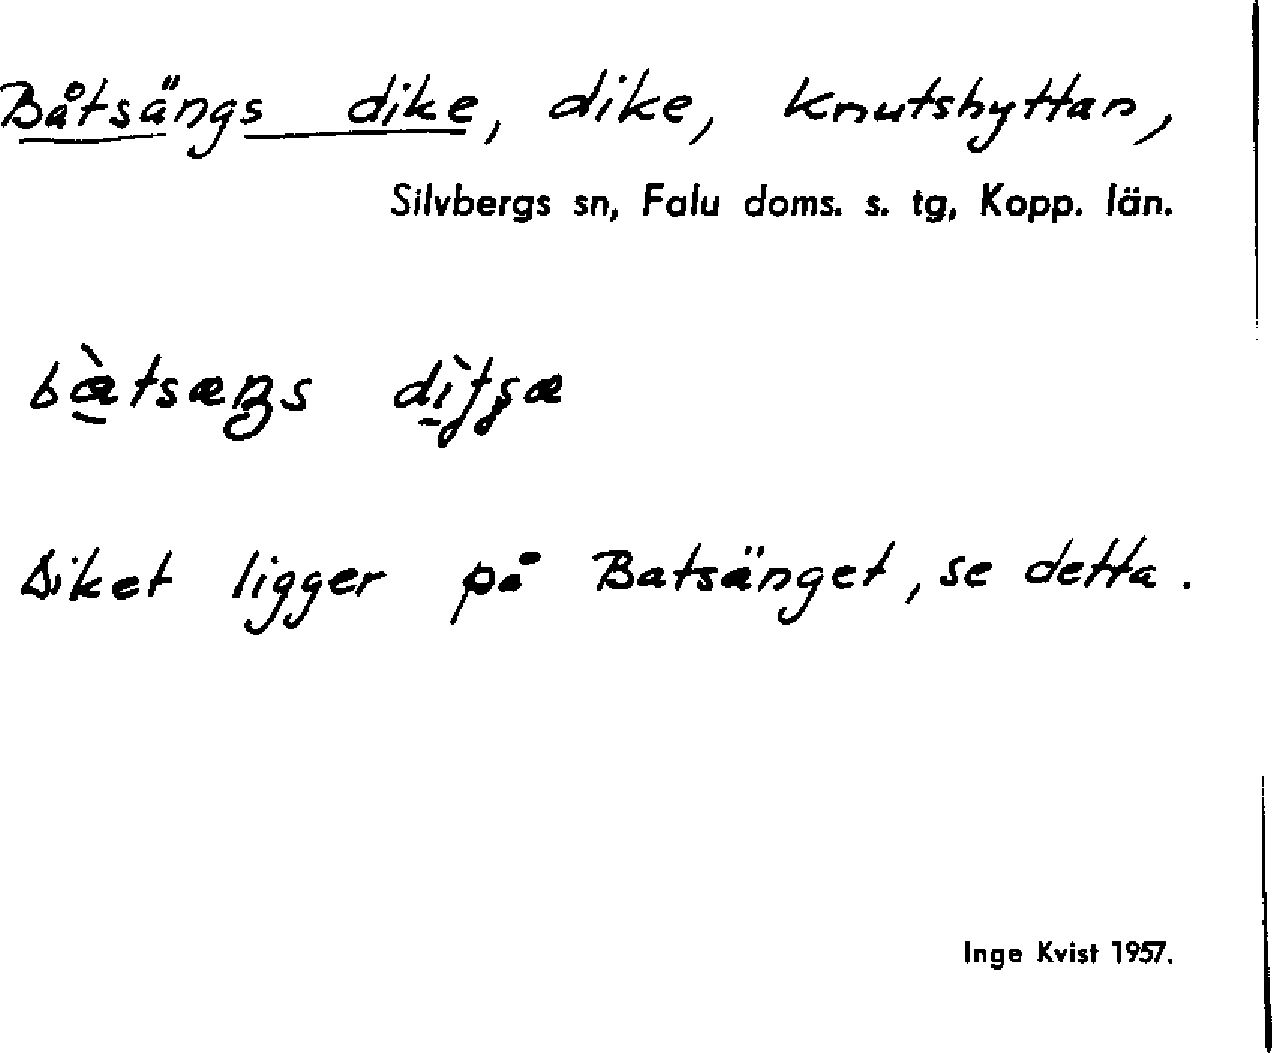 Båtsängs dike, dike, Knutshyttan,
Silvbergs sn, Falu doms. s. tg, Kopp. län.
Diket ligger på Batsänget, se detta.
Inge Kvist 1957.